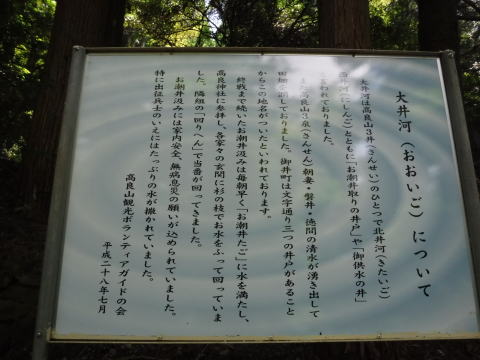 大井河（おおいご）について
大井河は高良山３井（さんせい）のひとつで北井河（きたいご）
西井河（にしんご）とともに「お潮井取りの井戸」や「御供水の井」
といわれておりました。
また高良山３泉（さんせん）朝妻・磐井・徳間の清水が湧き出して
田畑を潤しておりました。御井町は文字通り三つの井戸があること
からこの地名がついたといわれております。
終戦まで続いたお潮井汲みは毎朝早く「お潮井たご」に水を満たし、
高良神社に参拝し、各家々の玄関に杉の枝でお水をふって回っていま
した。隣組の「回りへん」で当番が回ってきました。
お潮井汲みには家内安全、無病息災の願いが込められていました。
特に出征兵士のいえにはたっぷりの水が撒かれていました。
高良山観光ボランティアガイドの会
平成二十八年七月